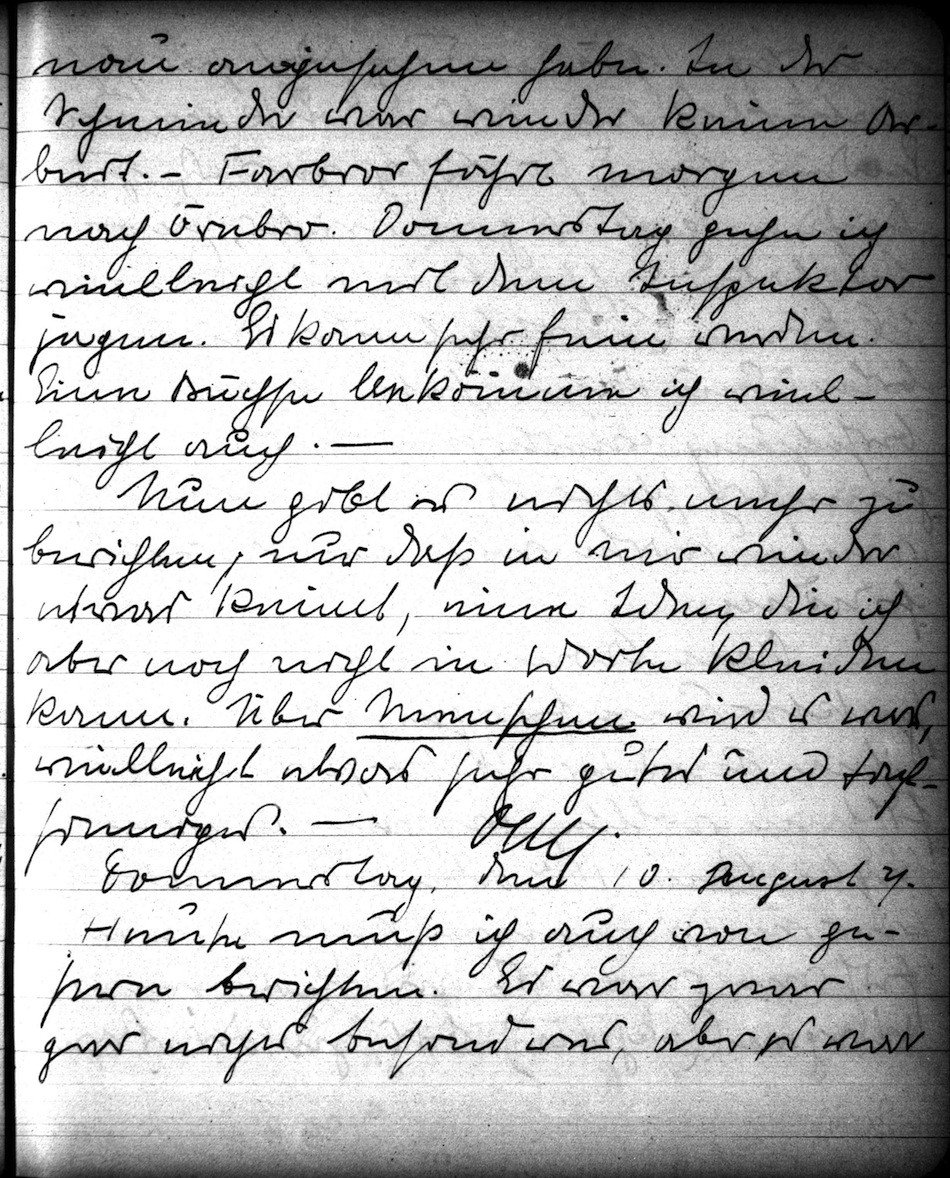 neu angesehen habe. In der
Schmiede war wieder keine Ar-
beit. – Farbror fährt morgen
nach Örebro. Donnerstag gehe ich
vielleicht mit dem Inspektor
jagen. Es kann sehr fein werden.
Eine Büchse bekomme ich viel-
leicht auch. —
Nun gibt es nichts mehr zu
berichten, nur daß in mir wieder
etwas keimt, eine Idee, die ich
aber noch nicht in Worte kleiden
kann. Über Menschen wird es was,
vielleicht etwas sehr gutes und tief-
sinniges. —
Donnerstag, den 10. August
Heute muß ich auch von ge-
stern berichten. Es war zwar
gar nichts besonderes, aber es war